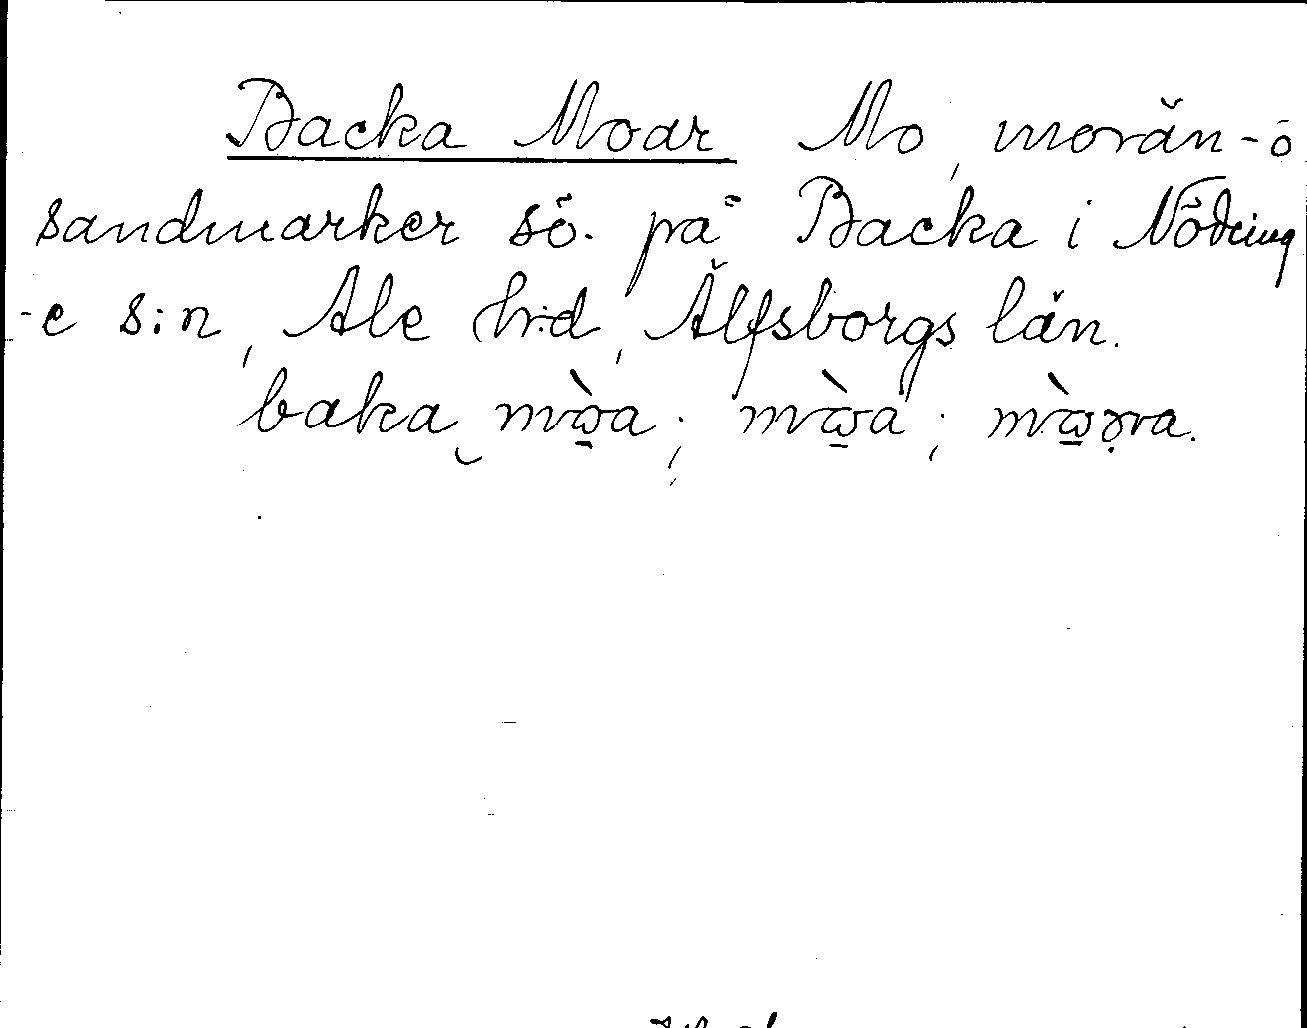 Backa Moar Mo, morän- ö
sandmarker sö. på Backa i Nöding
-e s:n, Ale h:d, Älfsborgs län.
baka mò̱a; mò̱a; mò̱ərа.